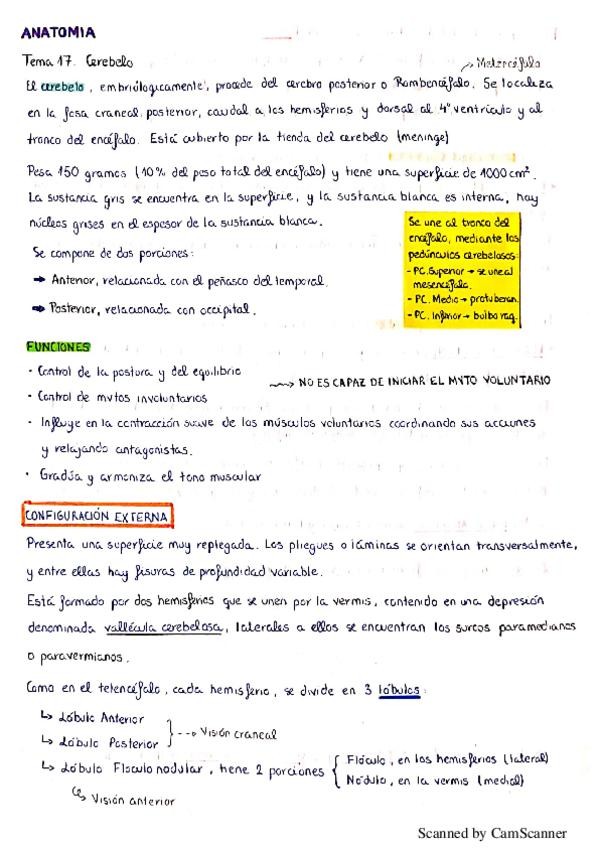 ANATOMIA
Tema 17. Cerebelo
→ Metencéfalo
El cerebelo, embriólogicamente, procede del cerebro posterior o Rombencéfalo. Se localiza
en la fosa craneal posterior, caudal a los hemisferios y dorsal al 4º ventrículo y al
tronco del encéfalo. Está cubierto por la tienda del cerebelo (meninge)
Pesa 150 gramos (10% del peso total del encéfalo) y tiene una superficie de 1000 cm².
La sustancia gris se encuentra en la superficie, y la sustancia blanca es interna, hay
núcleos grises en el espesor de la sustancia blanca.
Se une al tronco del
encéfalo, mediante los
pedúnculos cerebelosos:
- PC. Superior → se une al
mesencéfalo.
- PC. Medio → protuberan.
- PC. Inferior → bulbo raq.
Se compone de dos porciones:
➡ Anterior, relacionada con el peñasco del temporal.
➡ Posterior, relacionada con occipital.
FUNCIONES
· Control de la postura y del equilibrio
· Control de mvtos involuntarios
→ NO ES CAPAZ DE INICIAR EL MVTO VOLUNTARIO
· Influye en la contracción suave de los músculos voluntarios coordinando sus acciones
y relajando antagonistas.
· Gradúa y armoniza el tono muscular
CONFIGURACIÓN EXTERNA
Presenta una superficie muy replegada. Los pliegues o láminas se orientan transversalmente,
y entre ellas hay fisuras de profundidad variable.
Está formado por dos hemisferios que se unen por la vermis, contenido en una depresión
denominada vallécula cerebelosa, laterales a ellos se encuentran los surcos paramedianos
o paravermianos.
Como en el telencéfalo, cada hemisferio, se divide en 3 lóbulos:
↳ Lóbulo Anterior
↳ Lóbulo Posterior
} --→ Visión craneal
↳ Lóbulo Floculonodular, tiene 2 porciones { Flóculo, en los hemisferios (lateral)
Nódulo, en la vermis (medial)
↳ Visión anterior
Scanned by CamScanner